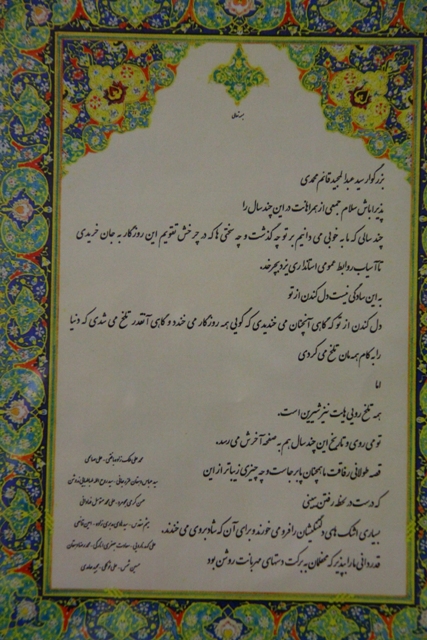 بسمه تعالی
بزرگوار سید عبدالمجید قائم محمدی
پذیرا باش سلام جمعی از همراهانت در این چند سال را
چند سالی که ما به خوبی می دانیم بر تو چه گذشت و چه سختی ها که در چرخش تقویم این روزگار به جان خریدی
تا آسیاب روابط عمومی استانداری یزد بچرخد.
به این سادگی نیست دل کندن از تو
دل کندن از تو که گاهی آنچنان می خندیدی که گویی همه روزگار می خندد و گاهی آنقدر تلخ می شدی که دنیا
را به کام همه مان تلخ می کردی
اما
همه تلخ رویی هایت نیز شیرین است.
تو می روی و تاریخ این چند سال هم به صفحه آخرش می رسد.
قصه طولانی رفاقت ما همچنان پابرجاست و چه چیزی زیباتر از این
که درست در لحظه رفتن ببینی
بسیاری اشک های دلتنگیشان را فرو می خورند و برای آن که شاد بروی می خندند.
قدردانی ما را بپذیر که محفلمان به برکت دستهای مهربانت روشن بود